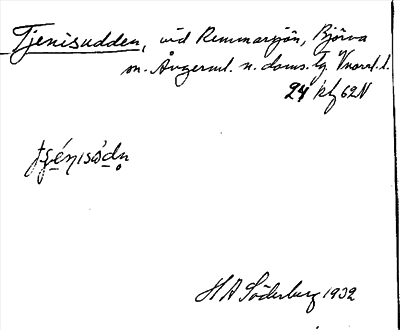 Tjenisudden, vid Remmarsjön, Björna
sn. Ångerml. n. doms. tg. Vnorrl. l.
24 kf 62 N
H A Söderberg 1932